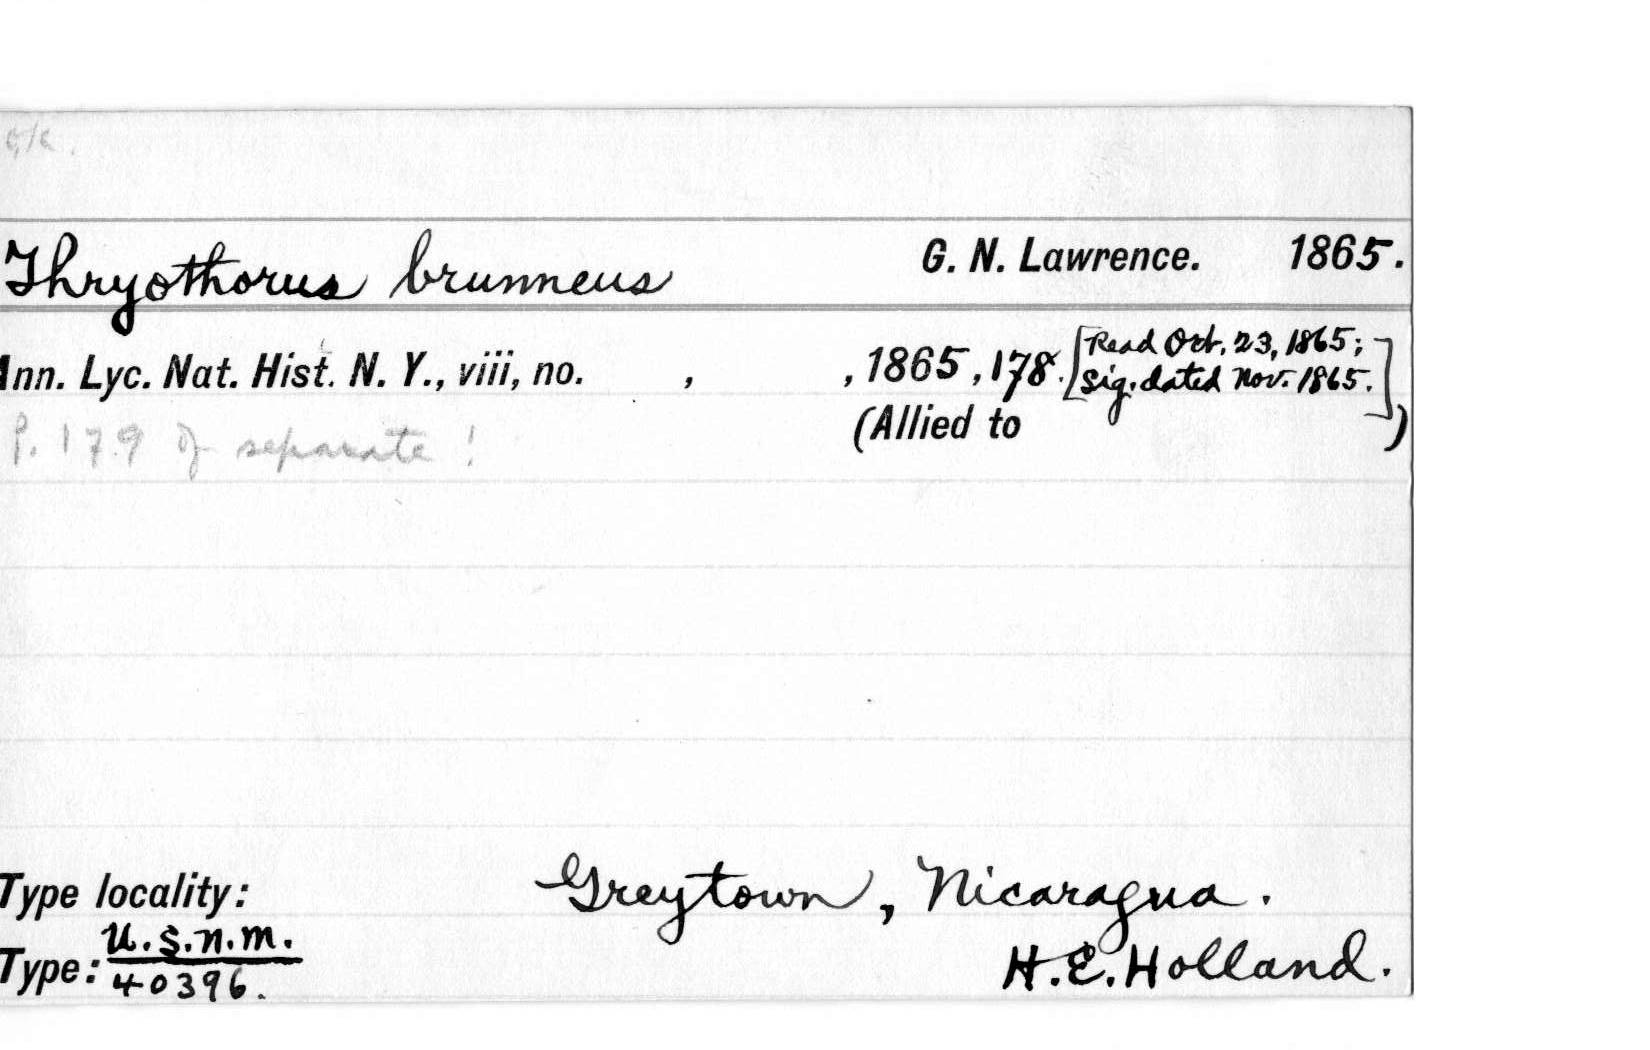 Thryothorus brunneus G. N. Lawrence. 1865.
Ann. Lyc. Nat. Hist. N. Y., viii, no. , , 1865, 178. [Read Oct. 23, 1865;
Sig. dated Nov. 1865.]
P. 179 of separate! (Allied to )
Type locality: Greytown, Nicaragua.
Type: U.S.N.M. H.E. Holland.
40396.